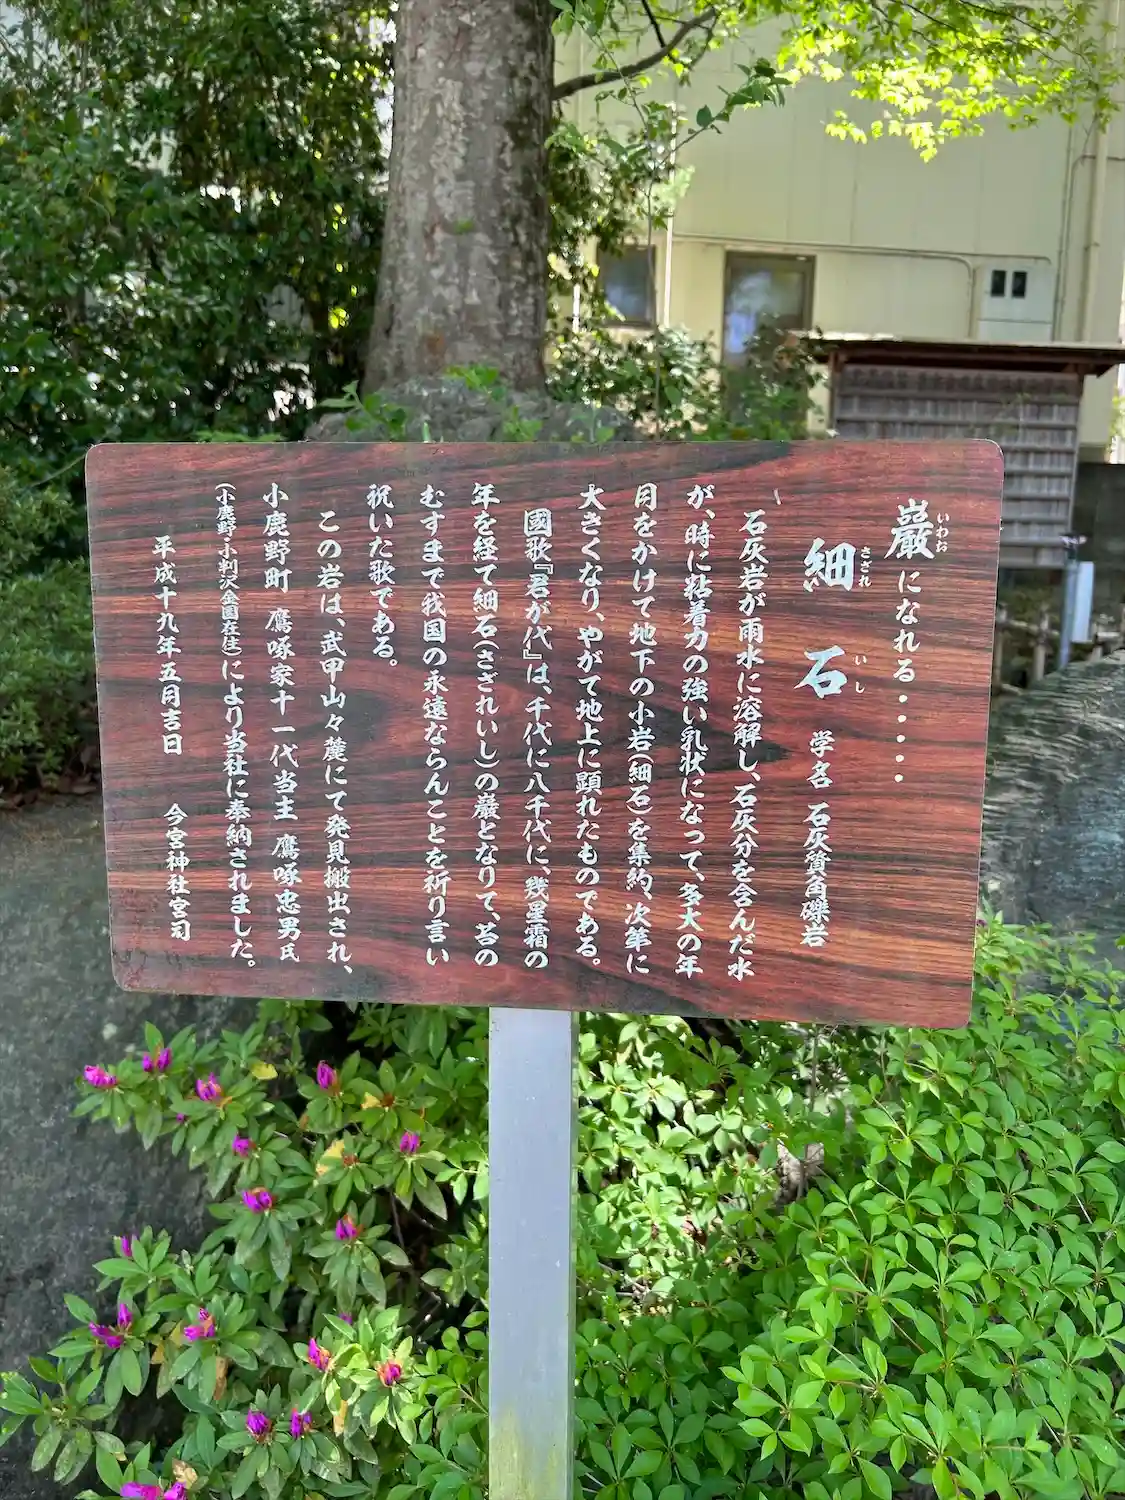 巌になれる・・・・・
いわお
細石 学名 石灰質角礫岩
さざれ いし
石灰岩が雨水に溶解し、石灰分を含んだ水
が、時に粘着力の強い乳状になって、多大の年
月をかけて地下の小岩(細石)を集約、次第に
大きくなり、やがて地上に顕れたものである。
國歌『君が代』は、千代に八千代に、幾星霜の
年を経て細石(さざれいし)の巌となりて、苔の
むすまで我国の永遠ならんことを祈り言い
祝いた歌である。
この岩は、武甲山々麓にて発見搬出され、
小鹿野町 鷹啄家十一代当主 鷹啄忠男氏
(小鹿野・小判沢企国在住)により当社に奉納されました。
平成十九年五月吉日 今宮神社宮司